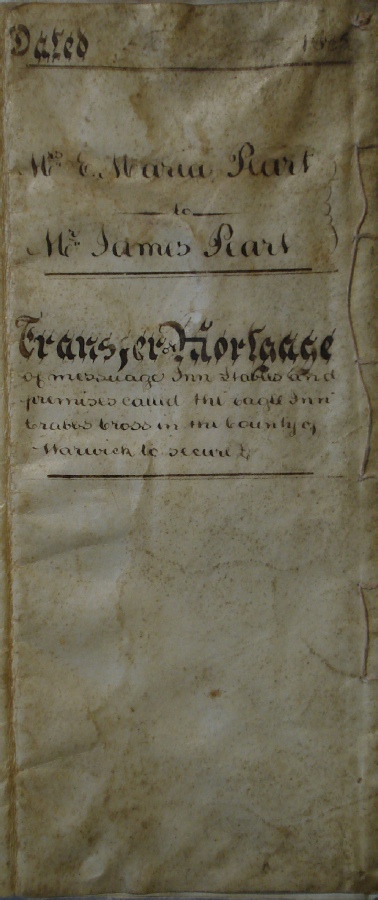 Dated 18
Mrs E. Maria Peart
to
Mr James Peart
Transfer of Mortgage
of messuage Inn Stables and
premises called the Eagle Inn
Crabbs Cross in the County of
Warwick to secure £